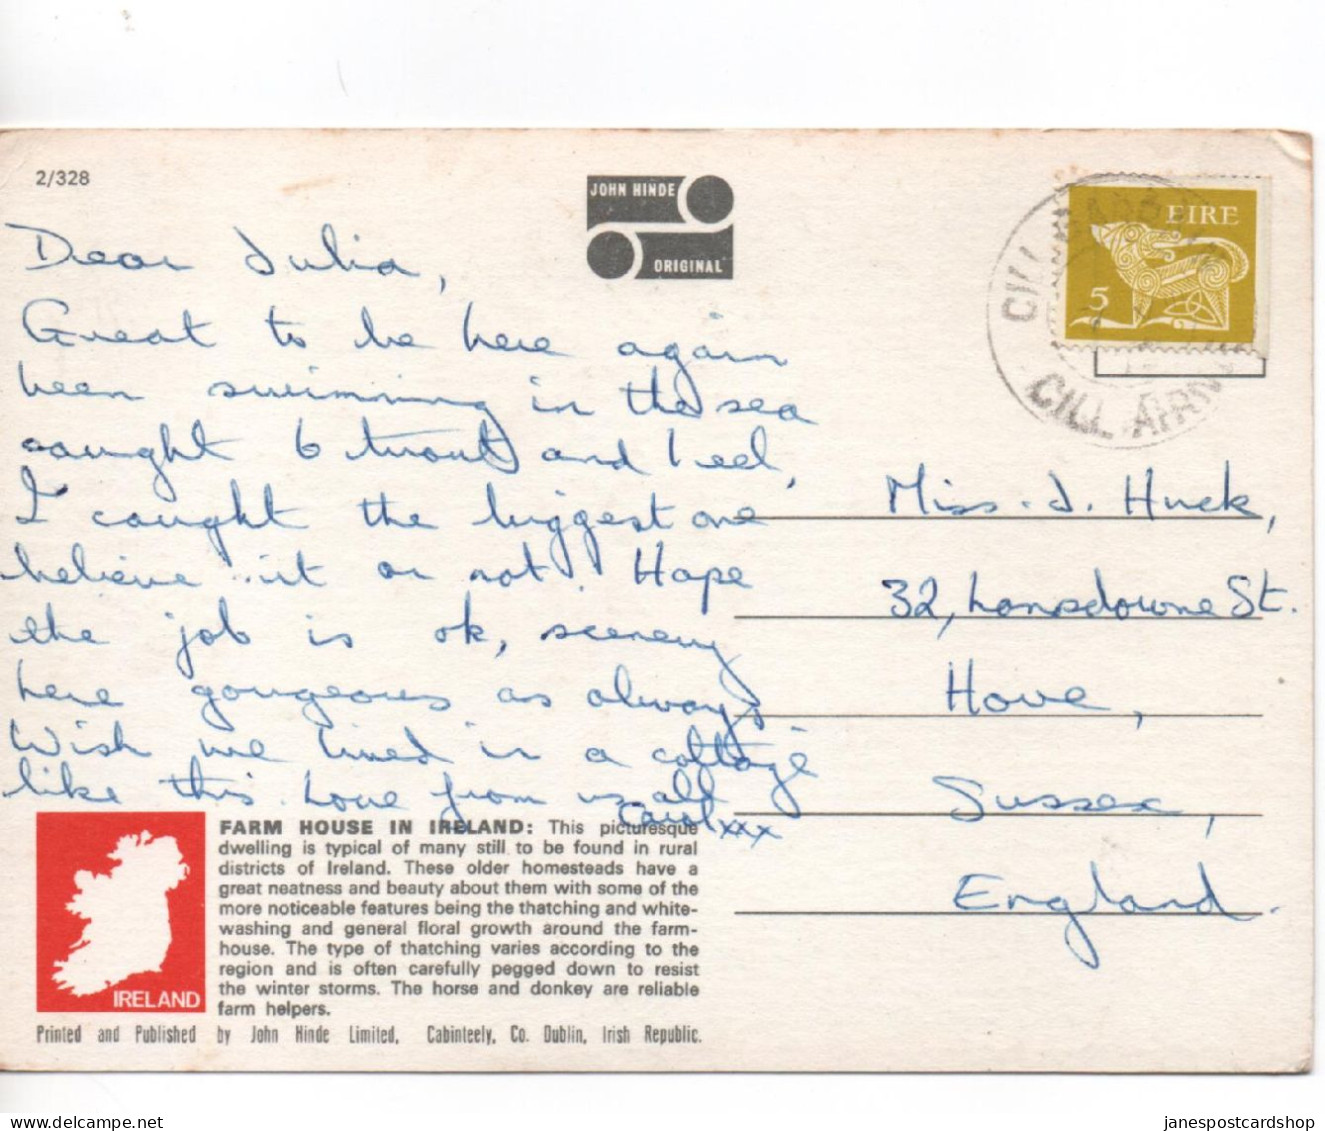 2/328
JOHN HINDE
ORIGINAL
EIRE
5
CILL
CILL AIRN
Dear Julia,
Great to be here again
been swimming in the sea
caught 6 trout and 1 eel,
I caught the biggest one
believe it or not. Hope
the job is ok, scenery
here gorgeous as always
Wish we lived in a cottage
like this. Love from us all
Carol xxx
Miss. J. Huck,
32, Lansdowne St.
Hove,
Sussex,
England.
FARM HOUSE IN IRELAND: This picturesque
dwelling is typical of many still to be found in rural
districts of Ireland. These older homesteads have a
great neatness and beauty about them with some of the
more noticeable features being the thatching and white-
washing and general floral growth around the farm-
house. The type of thatching varies according to the
region and is often carefully pegged down to resist
the winter storms. The horse and donkey are reliable
farm helpers.
IRELAND
Printed and Published by John Hinde Limited, Cabinteely, Co. Dublin, Irish Republic.
www.delcampe.net
janespostcardshop